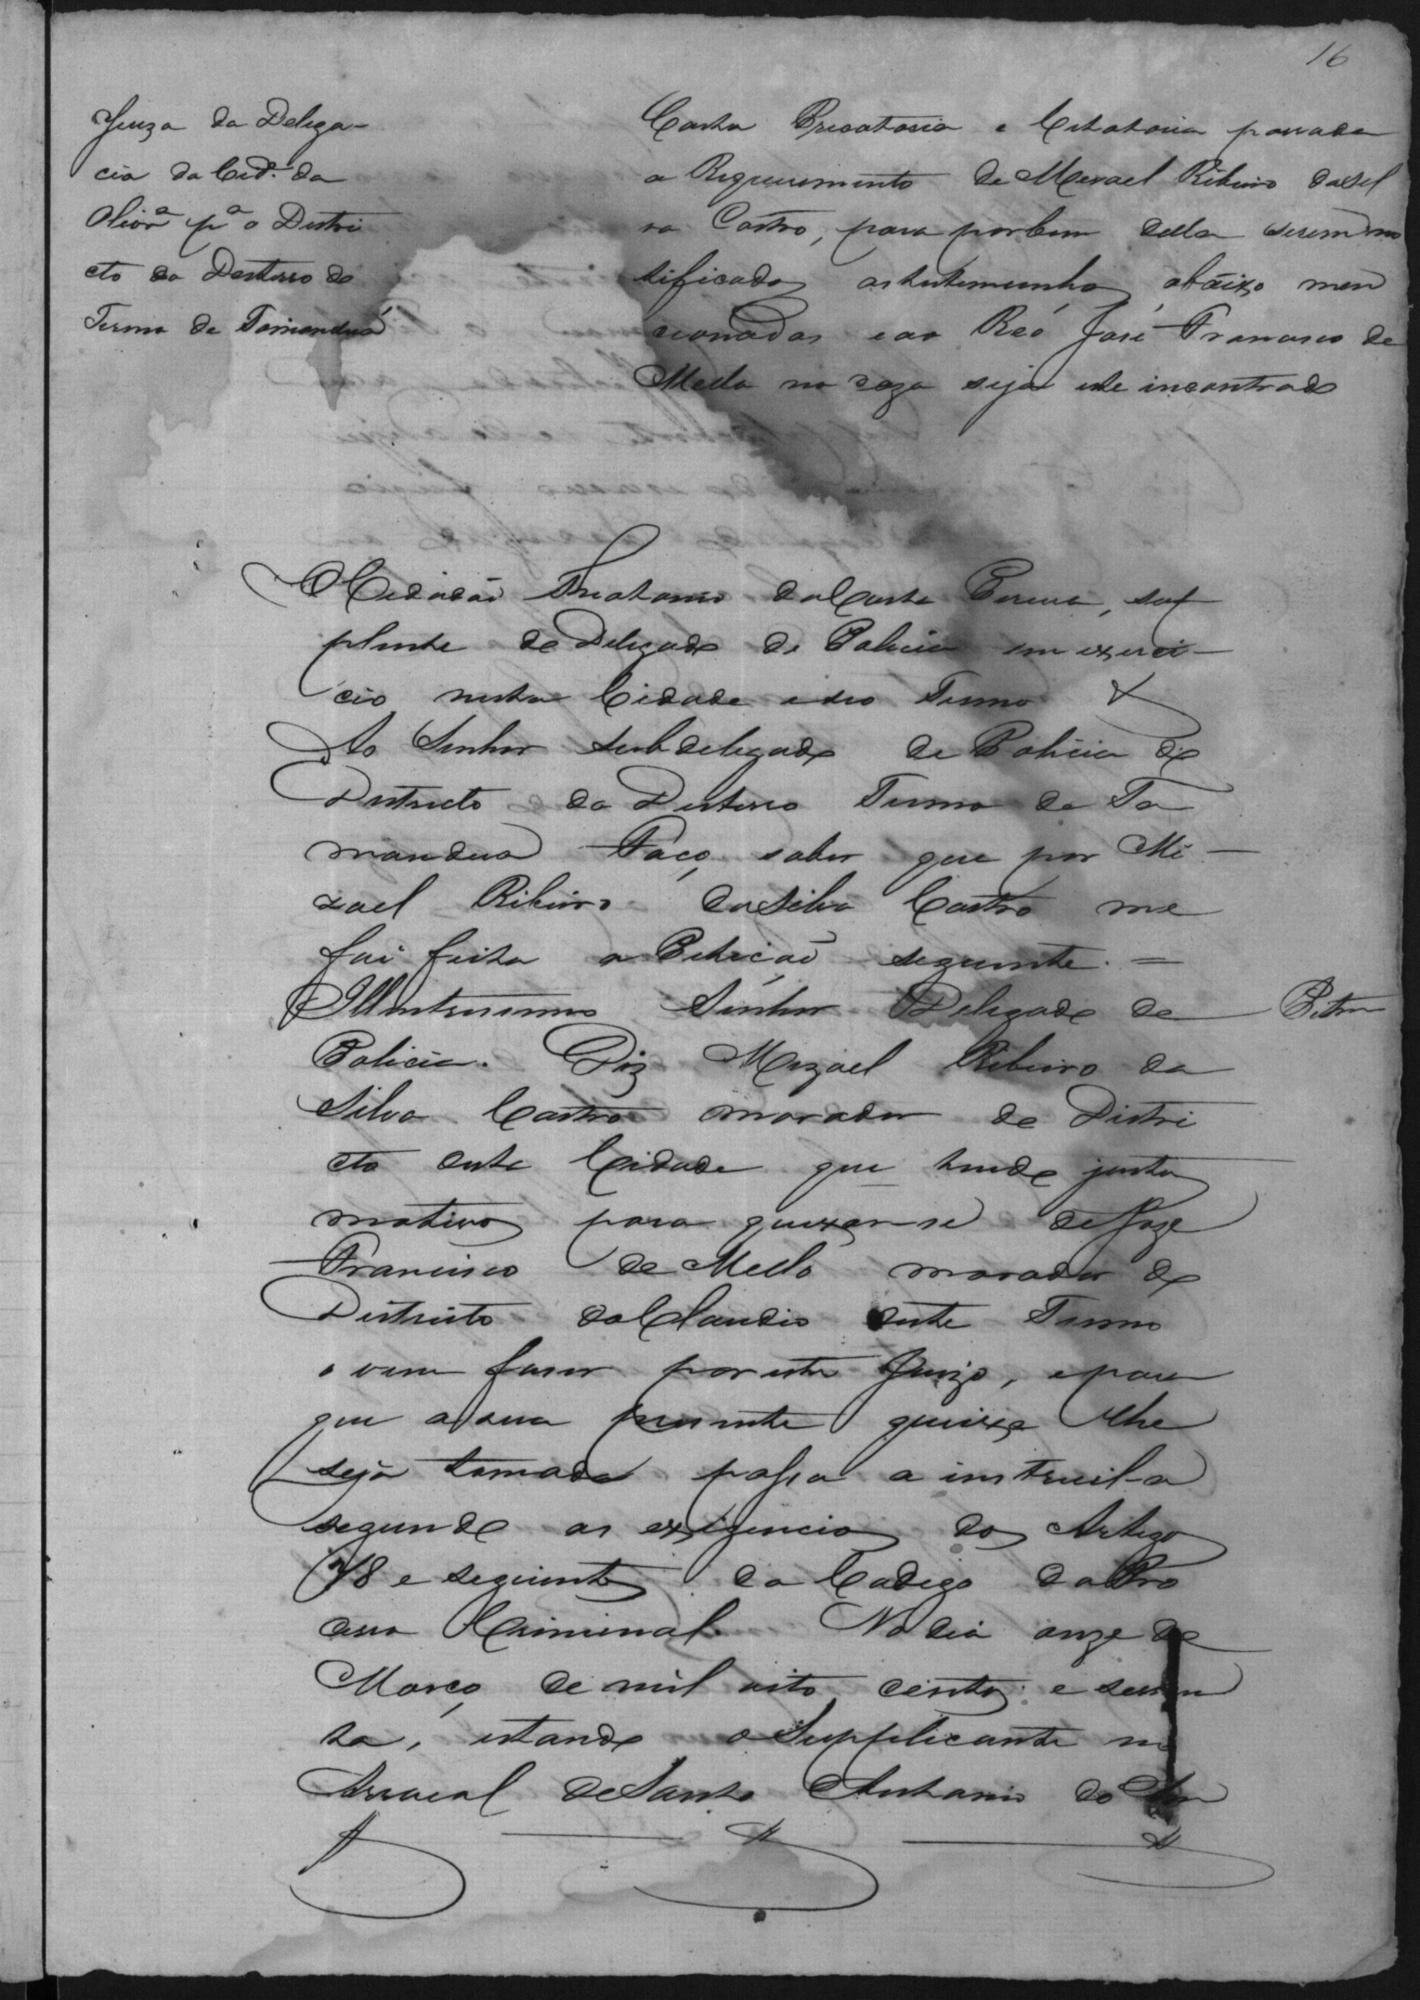 16
Juizo da Delega-
cia da Cid.e da
Olivr.a p.a o Distri
cto do Desterro do
Termo de Tamanduá
Carta Precatoria e Citatoria passada
a Requerimento de Mizael Ribeiro da Sil
va Castro, para por bem della serem no
tificadas as testemunhas abaixo men
cionadas e ao Reó José Francisco de
Mello no cazo seja elle incontrado
O Cidadaõ da Costa Pereira, sup
plente de Delegado de Policia em exerci-
cio nesta Cidade e seo Termo &
Ao Senhor Subdelegado de Policia do
Districto do Desterro Termo de Ta
mandua Faço saber que por Mi-
zael Ribeiro da Silva Castro me
foi feita a Peticaõ seguinte. =
Illustrissimo Senhor Delegado de
Petm
Policia. Diz Mizael Ribeiro da
Silva Castro morador do Distri
cto desta Cidade que tendo justos
motivos para queixar-se de Joze
Francisco de Mello morador do
Districto do Claudio deste Termo
o vem faser por este Juizo, e para
que a sua presente queixa lhe
seja tomada passa a instruil-a
segundo as exigencias dos Artigo
78 e seguintes do Codigo do Pro
cesso Criminal. No dia onze de
Março de mil oito centos e sessen
ta, estando o Supplicante no
Arraial de Santo Antonio do Am